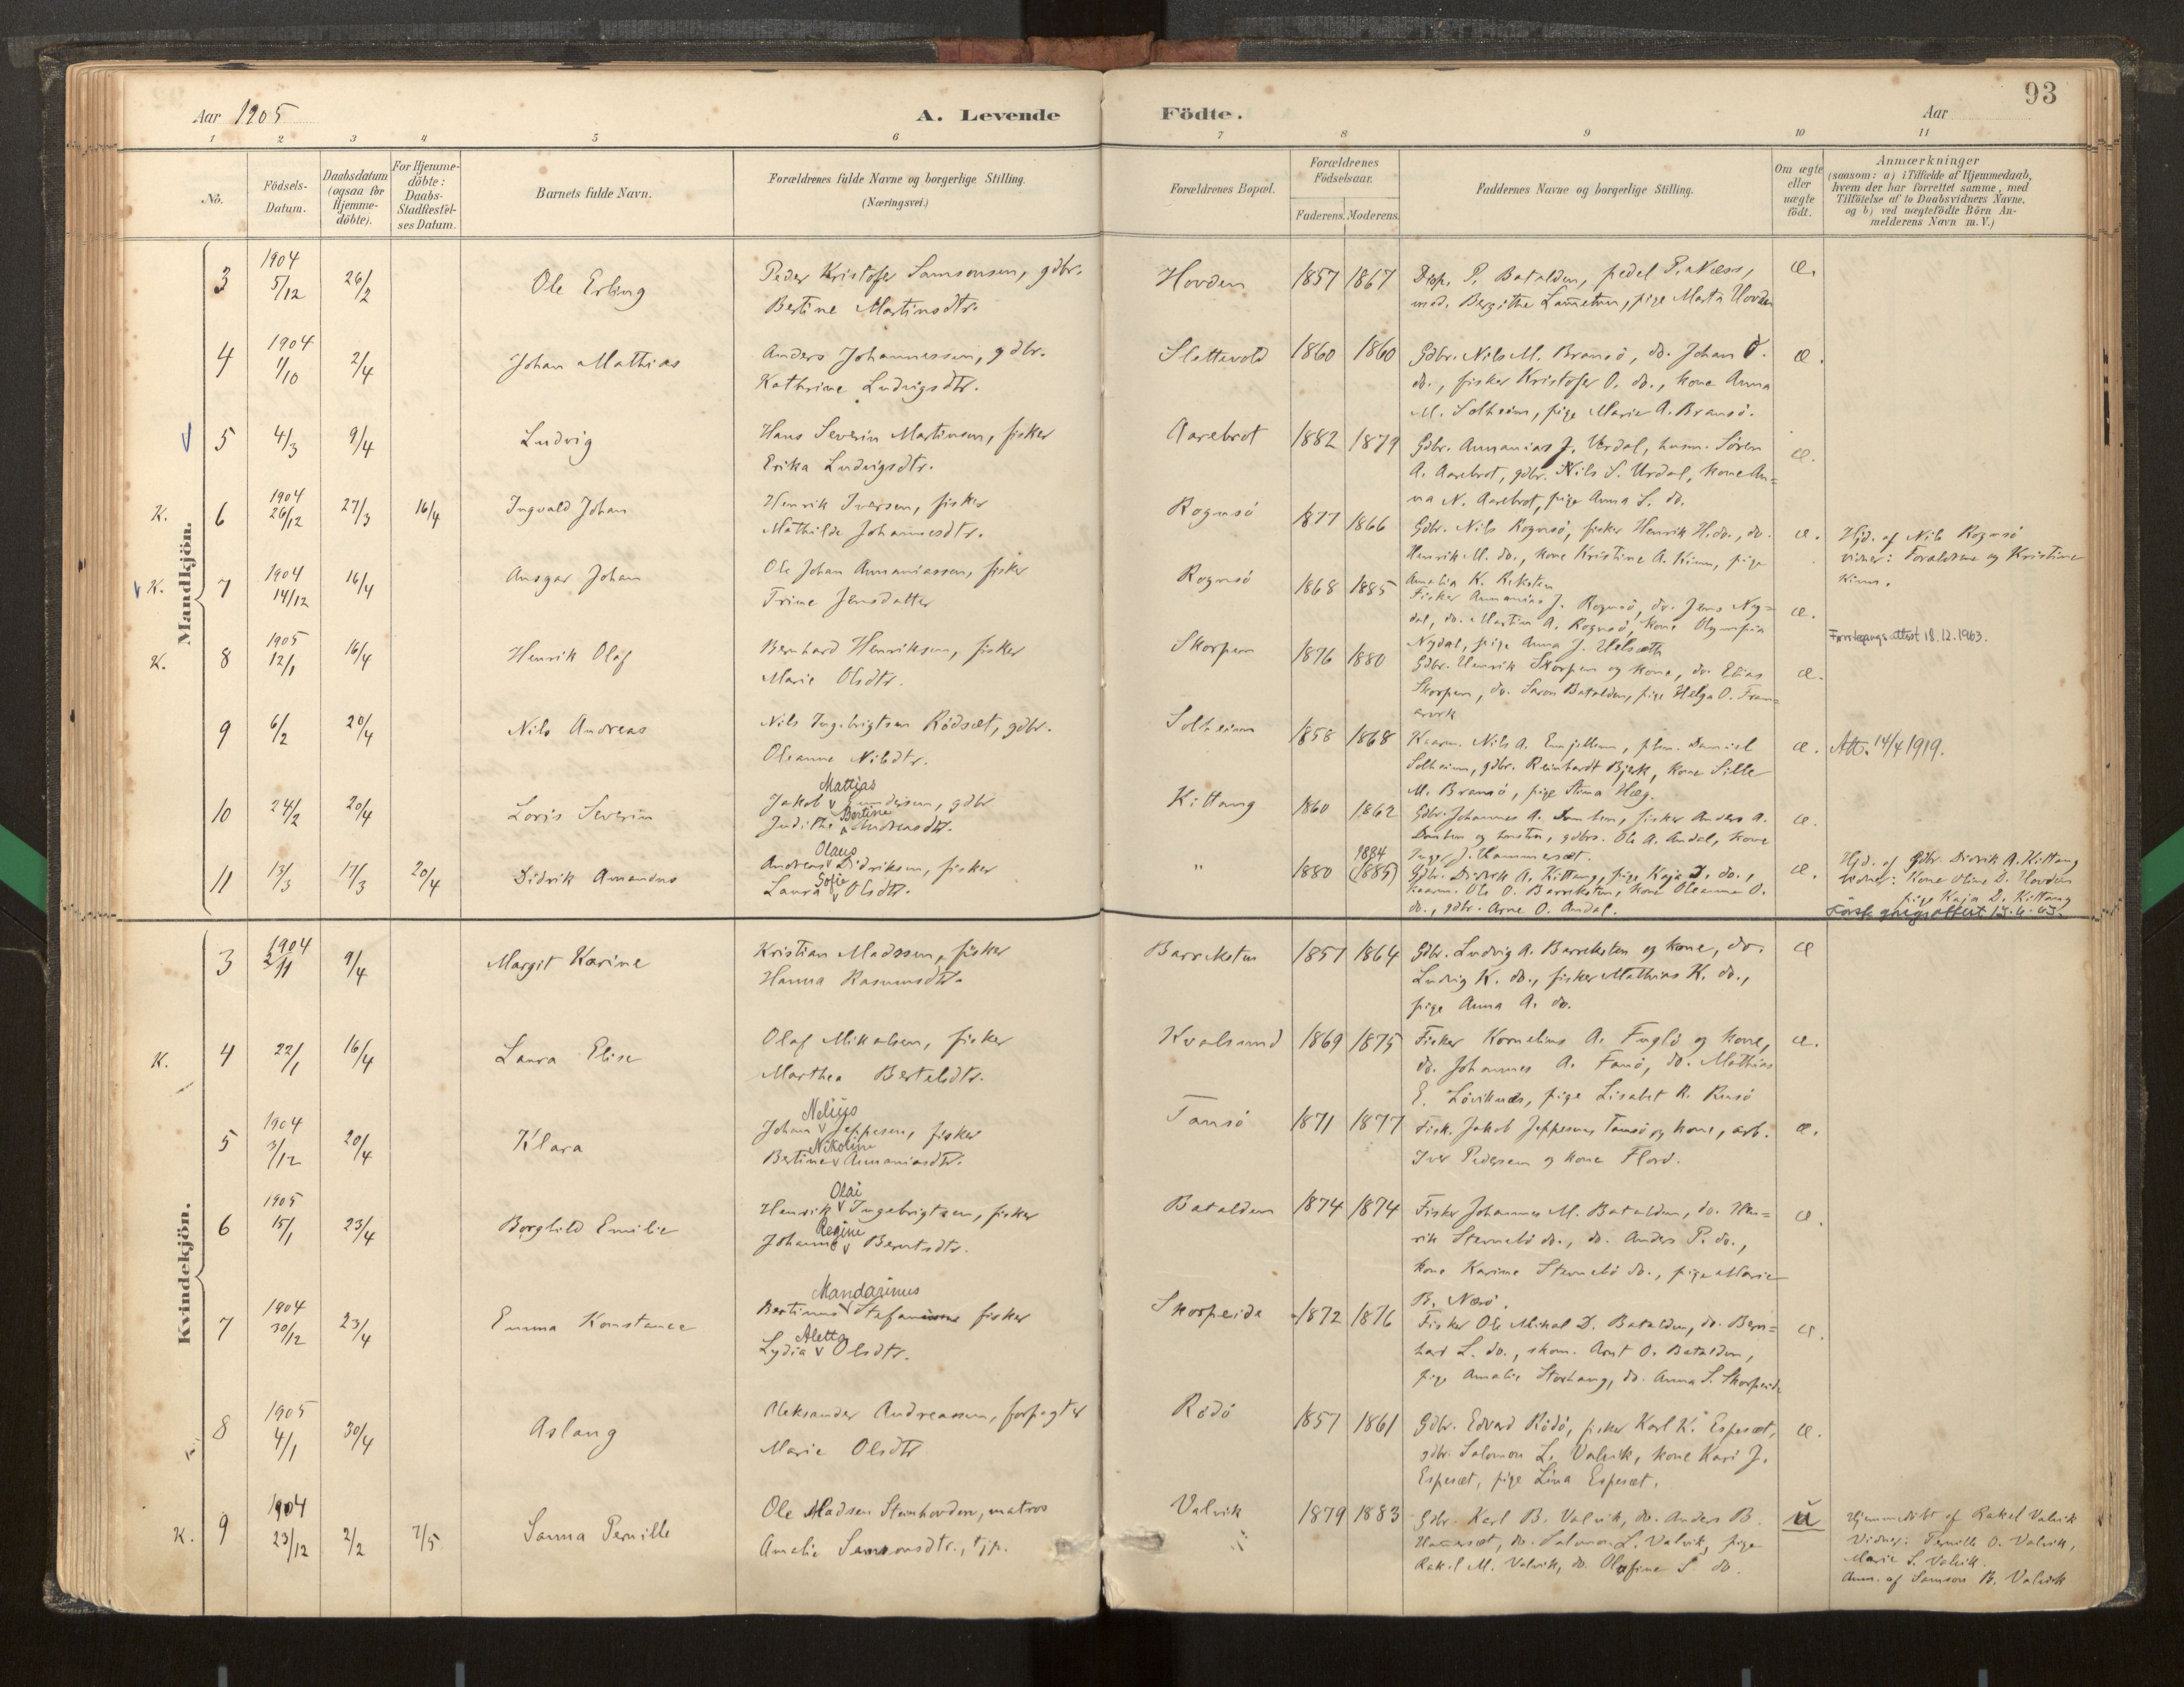 93
Aar 1905
A. Levende
Födte.
Aar
1 2 3 4 5 6 7 8 9 10 11
Nô.
Födsels-Datum.
Daabsdatum (ogsaa for Hjemme-döbte).
For Hjemme-döbte: Daabs-Stadfæstel-ses Datum.
Barnets fulde Navn.
Forældrenes fulde Navne og borgerlige Stilling. (Næringsvei.)
Forældrenes Bopæl.
Forældrenes Födselsaar.
Faderens. Moderens.
Faddernes Navne og borgerlige Stilling.
Om ægte eller uægte födt.
Anmærkninger
(saasom: a) i Tilfælde af Hjemmedaab,
hvem der har forrettet samme, med
Tilföielse af to Daabsvidners Navne,
og b) ved uægtefödte Börn An-
melderens Navn m. V.)
Mandkjön.
3 1904 5/12 26/2 Ole Erling
Peder Kristofer Samsonsen, gdbr.
Bertine Martinsdtr.
Hovden 1857 1867
Disp. P. Batalden, pedel P. Næss,
mad. Bergithe Lammetun, pige Marta Hovden
æ.
4 1904 1/10 2/4 Johan Mathias
Anders Johannessen, gdbr.
Kathrine Ludvigsdtr.
Slettevold 1860 1860
Gdbr. Nils M. Bransö, do. Johan O.
do., fisker Kristofer O. do., kone Anna
M. Solheim, pige Marie A. Bransö.
æ.
5 4/3 9/4 Ludvig
Hans Severin Martinsen, fisker
Erika Ludvigsdtr.
Aarebrot 1882 1879
Gdbr. Annanias J. Urdal, husm. Sören
A. Aarebrot, gdbr. Nils S. Urdal, kone An=
na N. Aarebrot, pige Anna S. do.
æ.
K. 6 1904 26/12 27/3 16/4 Ingvald Johan
Henrik Iversen, fisker
Mathilde Johannesdtr.
Rognsö 1877 1866
Gdbr. Nils Rognsö, fisker Henrik H. do., do.
Henrik M. do., kone Kristine A. Kinn, pige
Amalia K. Reksten
æ.
Hjd. af Nils Rognsö
Vidner: Forældrene og Kristine
Kinn.
K. 7 1904 14/12 16/4 Ansgar Johan
Ole Johan Annaniassen, fisker
Trine Jensdatter
Rognsö 1868 1885
Fisker Annanias J. Rognsö, do. Jens Nyg=
dal, do. Martin A. Rognsö, kone Olympia
Nygdal, pige Anna J. Helsæth
æ.
Førstegangs attest 18.12.1963.
K. 8 1905 12/1 16/4 Henrik Olaf
Bernhard Henriksen, fisker
Marie Olsdtr.
Skorpen 1876 1880
Gdbr. Henrik Skorpen og kone, do. Elias
Skorpen, do. Saron Batalden, pige Helga O. Fran=
æ.
9 6/2 20/4 Nils Andreas
Nils Ingebrigtsen Rödsæt, gdbr.
Oleanne Nilsdtr.
Solheim 1858 1868
Solheim, gdbr. Reinhardt Bjerk, kone Sille
M. Bransö, pige Stina Hæg.
æ.
Att. 14/4 1919.
10 24/2 20/4 Loris Severin
Mattias
Jakob v Gundersen, gdbr
Bertine
Judithe Andreasdtr.
Kittang 1860 1862
æ.
11 13/3 17/3 20/4 Didrik Amandus
Olaus
Andreas v Didriksen, fisker
Sofie
Laura v Olsdtr.
" 1880 1884 (1885)
Gdbr. Didrik A. Kittang, pige Kaja D. do.,
kaarm. Ole O. Barreksten, kone Oleanna O.
do., gdbr. Arne O. Andal.
æ.
Hjd. af Gdbr. Didrik A. Kittang
Vidner: Kone Oline D. Hovden
pige Kaja D. Kittang
Förstegangsattest 13.4.43.
Kvindekjön.
3 1904 2/11 9/4 Margit Karine
Kristian Madssen, fisker
Hanna Rasmusdtr.
Barreksten 1857 1864
Gdbr. Ludvig A. Barreksten og kone, do.
Ludvig K. do., fisker Mathias K. do.,
pige Anna A. do.
æ
K. 4 22/1 16/4 Laura Elise
Olaf Mikalsen, fisker
Marthea Bertelsdtr.
Kvalsund 1869 1875
Fisker Kornelius A. Fuglö og kone,
do. Johannes A. Fanö, do. Mathias
E. Löviknæs, pige Lisabet R. Rensö
æ.
5 1904 3/12 20/4 Klara
Nelius
Johan v Jeppesen, fisker
Nikoline
Bertine v Annaniasdtr.
Tansö 1871 1877
Fisk. Jakob Jeppesen Tansö og kone, arb.
Iver Pedersen og kone Florö.
æ.
6 1905 15/1 23/4 Borghild Emilie
Olai
Henrik v Ingebrigtsen, fisker
Regine
Johanne v Berntsdtr.
Batalden 1874 1874
Fisker Johannes M. Batalden, do. Hen=
rik Stensebö do., do. Anders P. do.,
kone Karine Stensebö do., pige Marie
B. Næsö.
æ.
7 1904 30/12 23/4 Emma Konstance
Mandarinus
Bertinus v Stefansen fisker
Aletta
Lydia v Olsdtr.
Skorpeida 1872 1876
Fisker Ole Mikal D. Batalden, do. Bern=
hard L. do., skom. Arnt O. Batalden,
pige Amalie Storhaug, do. Anna S. Skorpeida
æ.
8 1905 4/1 30/4 Aslaug
Aleksander Andreassen, forpagter
Marie Olsdtr
Rödö 1857 1861
Gdbr. Edvard Rödö, fisker Karl K. Espesæt,
gdbr. Salomon L. Valvik, kone Kari J.
Espesæt, pige Lina Espesæt.
æ.
K. 9 1904 23/12 2/2 7/5 Sanna Pernille
Ole Madsen Steinhovden, matros
Amalie Samsonsdtr., tjp.
Valvik 1879 1883
Gdbr. Karl B. Valvik, do. Anders B.
Hammersæt, do. Salomon L. Valvik, pige
Rakel M. Valvik, do. Olufine S. do.
u
Hjemmedöbt af Rakel Valvik
Vidner: Pernille O. Valvik,
Marie S. Valvik.
Anm. af Samson B. Valvik